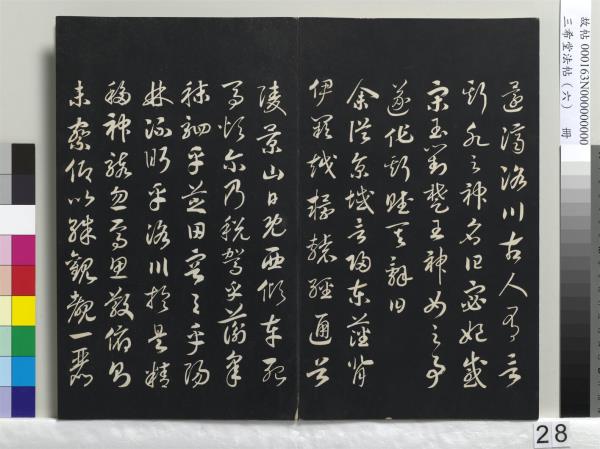 還濟洛川古人有言
斯水之神名曰宓妃感
宋玉對楚王神女之事
遂作斯賦其辭曰
余從京域言歸東藩背
伊闕越轘轅經通谷
陵景山日既西傾車殆
馬煩尔乃稅駕乎蘅皋
秣駟乎芝田容与乎陽
林流眄乎洛川於是精
移神駭忽焉思散俯則
未察仰以殊觀覩一麗
故帖 000163N000000000 冊
三希堂法帖(六)
28